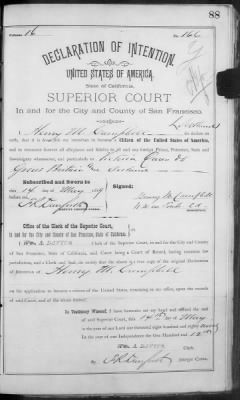 88
16
No. 166
DECLARATION OF INTENTION.
UNITED STATES OF AMERICA.
State of California,
SUPERIOR COURT
In and for the City and County of San Francisco.
Henry M. Campbell do declare on
oath, that it is bona fide my intention to become a Citizen of the United States of America,
and to renounce forever all allegiance and fidelity to all and any foreign Prince, Potentate, State and
Sovereignty whatsoever, and particularly to Victoria Queen of
Great Britain and Ireland
Subscribed and Sworn to
this 14 day of May
before me
Signed:
Henry M. Campbell
Office of the Clerk of the Superior Court,
In and for the City and County of San Francisco, State of California.
I, Wm. A. Clerk of the Superior Court, in and for the City and County
of San Francisco, State of California, said Court being a Court of Record, having common law
jurisdiction, and a Clerk and Seal, do certify that the above is a true copy of the original Declaration
of Intention of Henry M. Campbell
on the application to become a citizen of the United States, remaining in my office, upon the records
of said Court, and of the whole thereof.
In Testimony Whereof, I have hereunto set my hand and affixed the seal
of said Superior Court, this 14th day of May
in the year of our Lord one thousand eight hundred and eighty
in the Year of our Independence the One Hundred and
Wm. A. Clerk.
By Deputy Clerk.